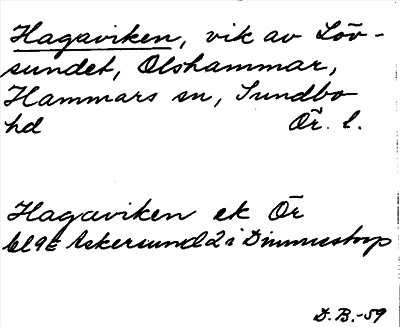 Hagaviken, vik av Löv-
sundet, Olshammar,
Hammars sn, Sundbo
hd Ör. l.
Hagaviken ek Ör
bl 9E Askersund 2 i Dimmestorp
D. B. -59